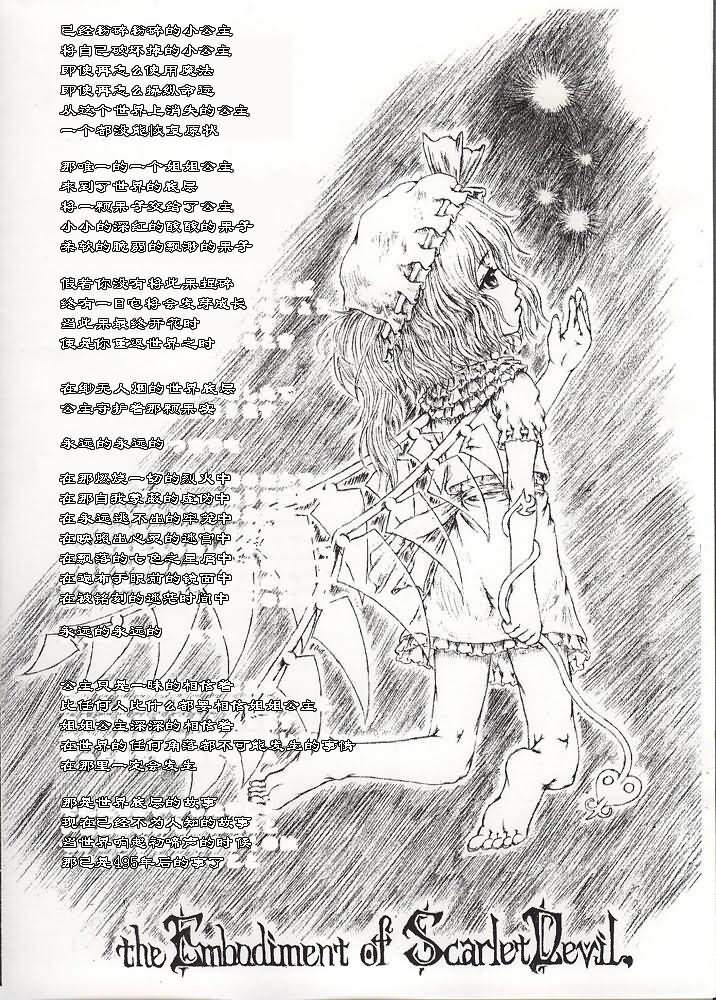 已经粉碎粉碎的小公主
将自己破坏掉的小公主
即使再怎么使用魔法
即使再怎么操纵命运
从这个世界上消失的公主
一个都没能恢复原状
那唯一的一个姐姐公主
来到了世界的底层
将一颗果子交给了公主
小小的深红的酸酸的果子
柔软的脆弱的飘渺的果子
假若你没有将此果捏碎
终有一日它将会发芽成长
当此果最终开花时
便是你重返世界之时
在渺无人烟的世界底层
公主守护着那颗果实
永远的永远的
在那燃烧一切的烈火中
在那自我蒙蔽的虚伪中
在永远逃不出的牢笼中
在映照出心灵的迷宫中
在飘落的七色之星屑中
在遍布于眼前的镜面中
在被铭刻的迷茫时间中
永远的永远的
公主只是一味的相信着
比任何人比什么都要相信姐姐公主
姐姐公主深深的相信着
在世界的任何角落都不可能发生的事情
在那里一定会发生
那是世界底层的故事
现在已经不为人知的故事
当世界响起初啼声的时候
那已是495年后的事了
the Embodiment of Scarlet Devil.